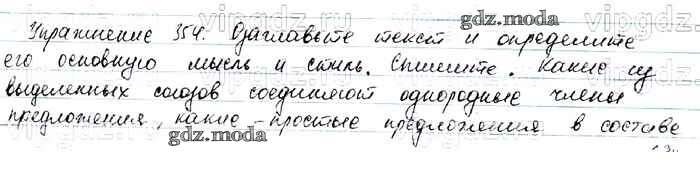 Упражнение 354. Озаглавьте текст и определите
его основную мысль и стиль. Спишите. Какие из
выделенных союзов соединяют однородные члены
предложения, какие - простые предложения в составе
gdz.moda
gdz.moda
gdz.moda
vipgdz.ru